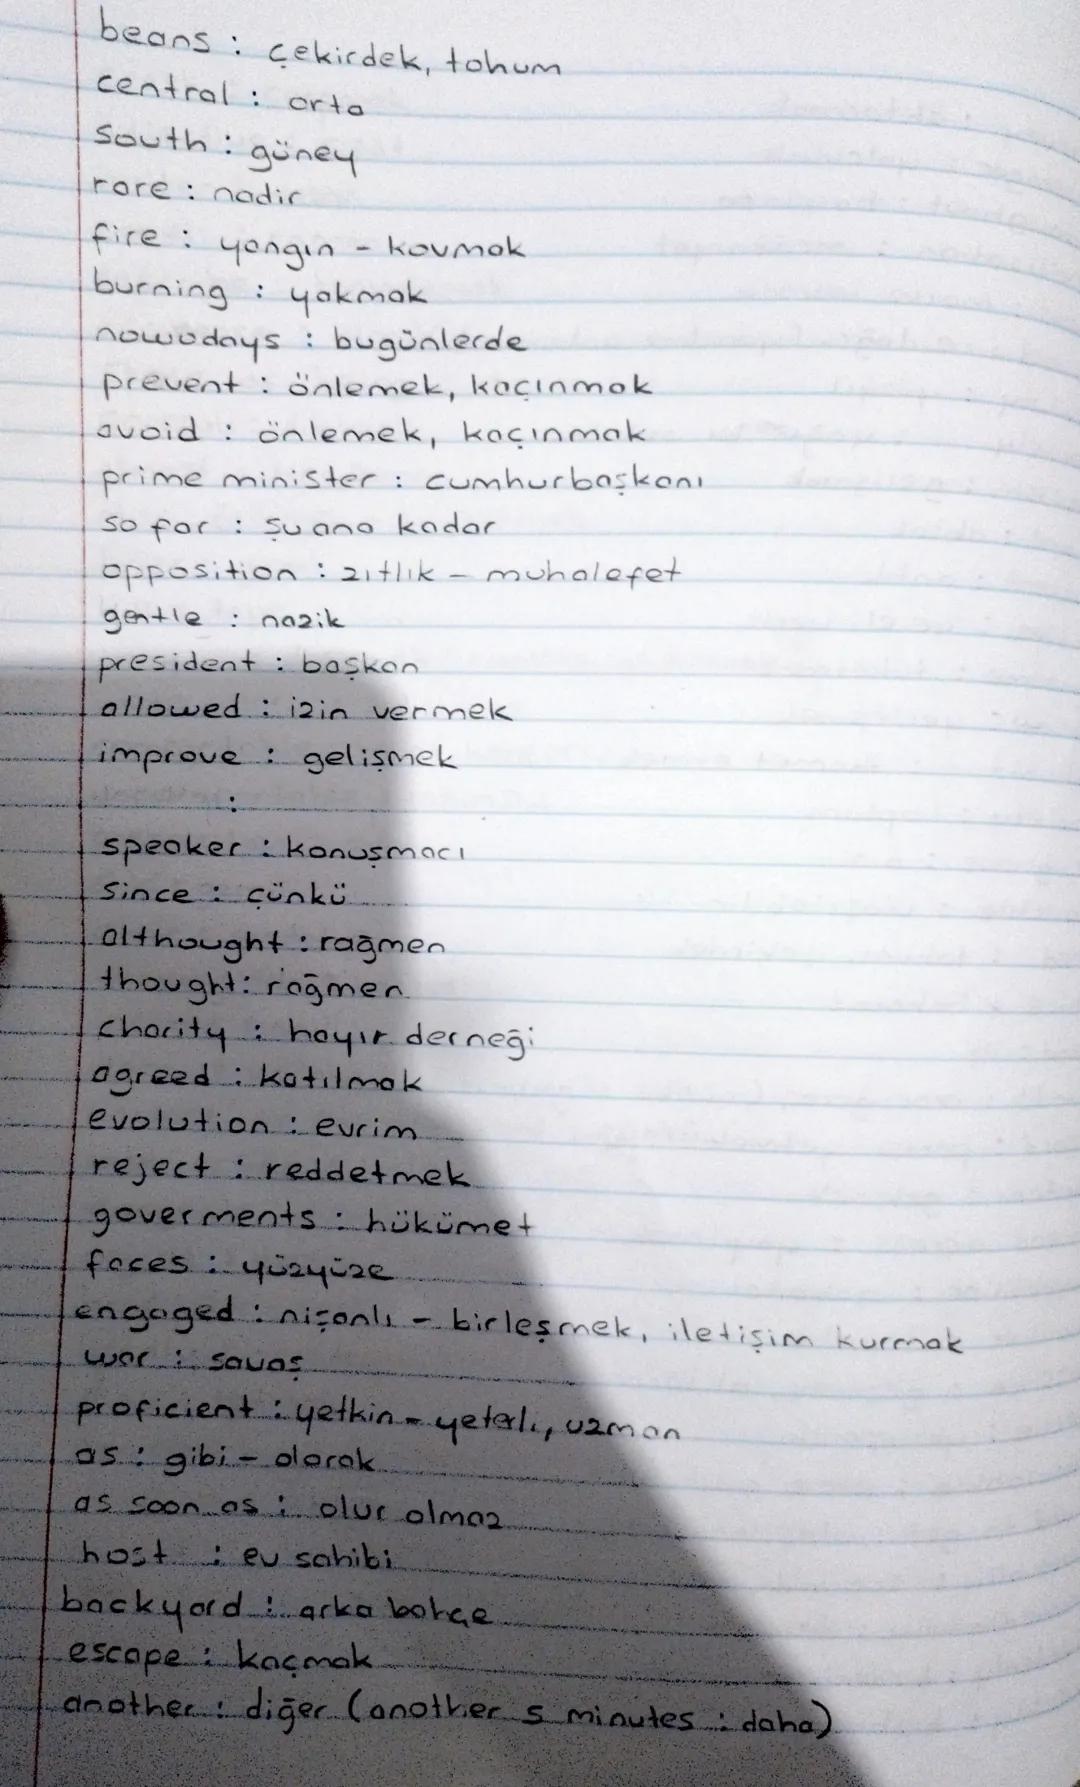 beans : çekirdek, tohum
central : orta
south : güney
rare : nadir
fire : yangın - kovmak
burning : yakmak
nowadays : bugünlerde
prevent : önlemek, kaçınmak
avoid : önlemek, kaçınmak
prime minister : cumhurbaşkanı
so far : şu ana kadar
opposition : zıtlık - muhalefet
gentle : nazik
president : başkan
allowed : izin vermek
improve : gelişmek
:
speaker : konuşmacı
since : çünkü
althought : rağmen
thought : rağmen
charity : hayır derneği
agreed : katılmak
evolution : evrim
reject : reddetmek
goverments : hükümet
faces : yüzyüze
engaged : nişanlı - birleşmek, iletişim kurmak
war : savaş
proficient : yetkin - yeterli, uzman
as : gibi - olarak
as soon as : olur olmaz
host : ev sahibi
backyard : arka bahçe
escape : kaçmak
another : diğer (another 5 minutes : daha)